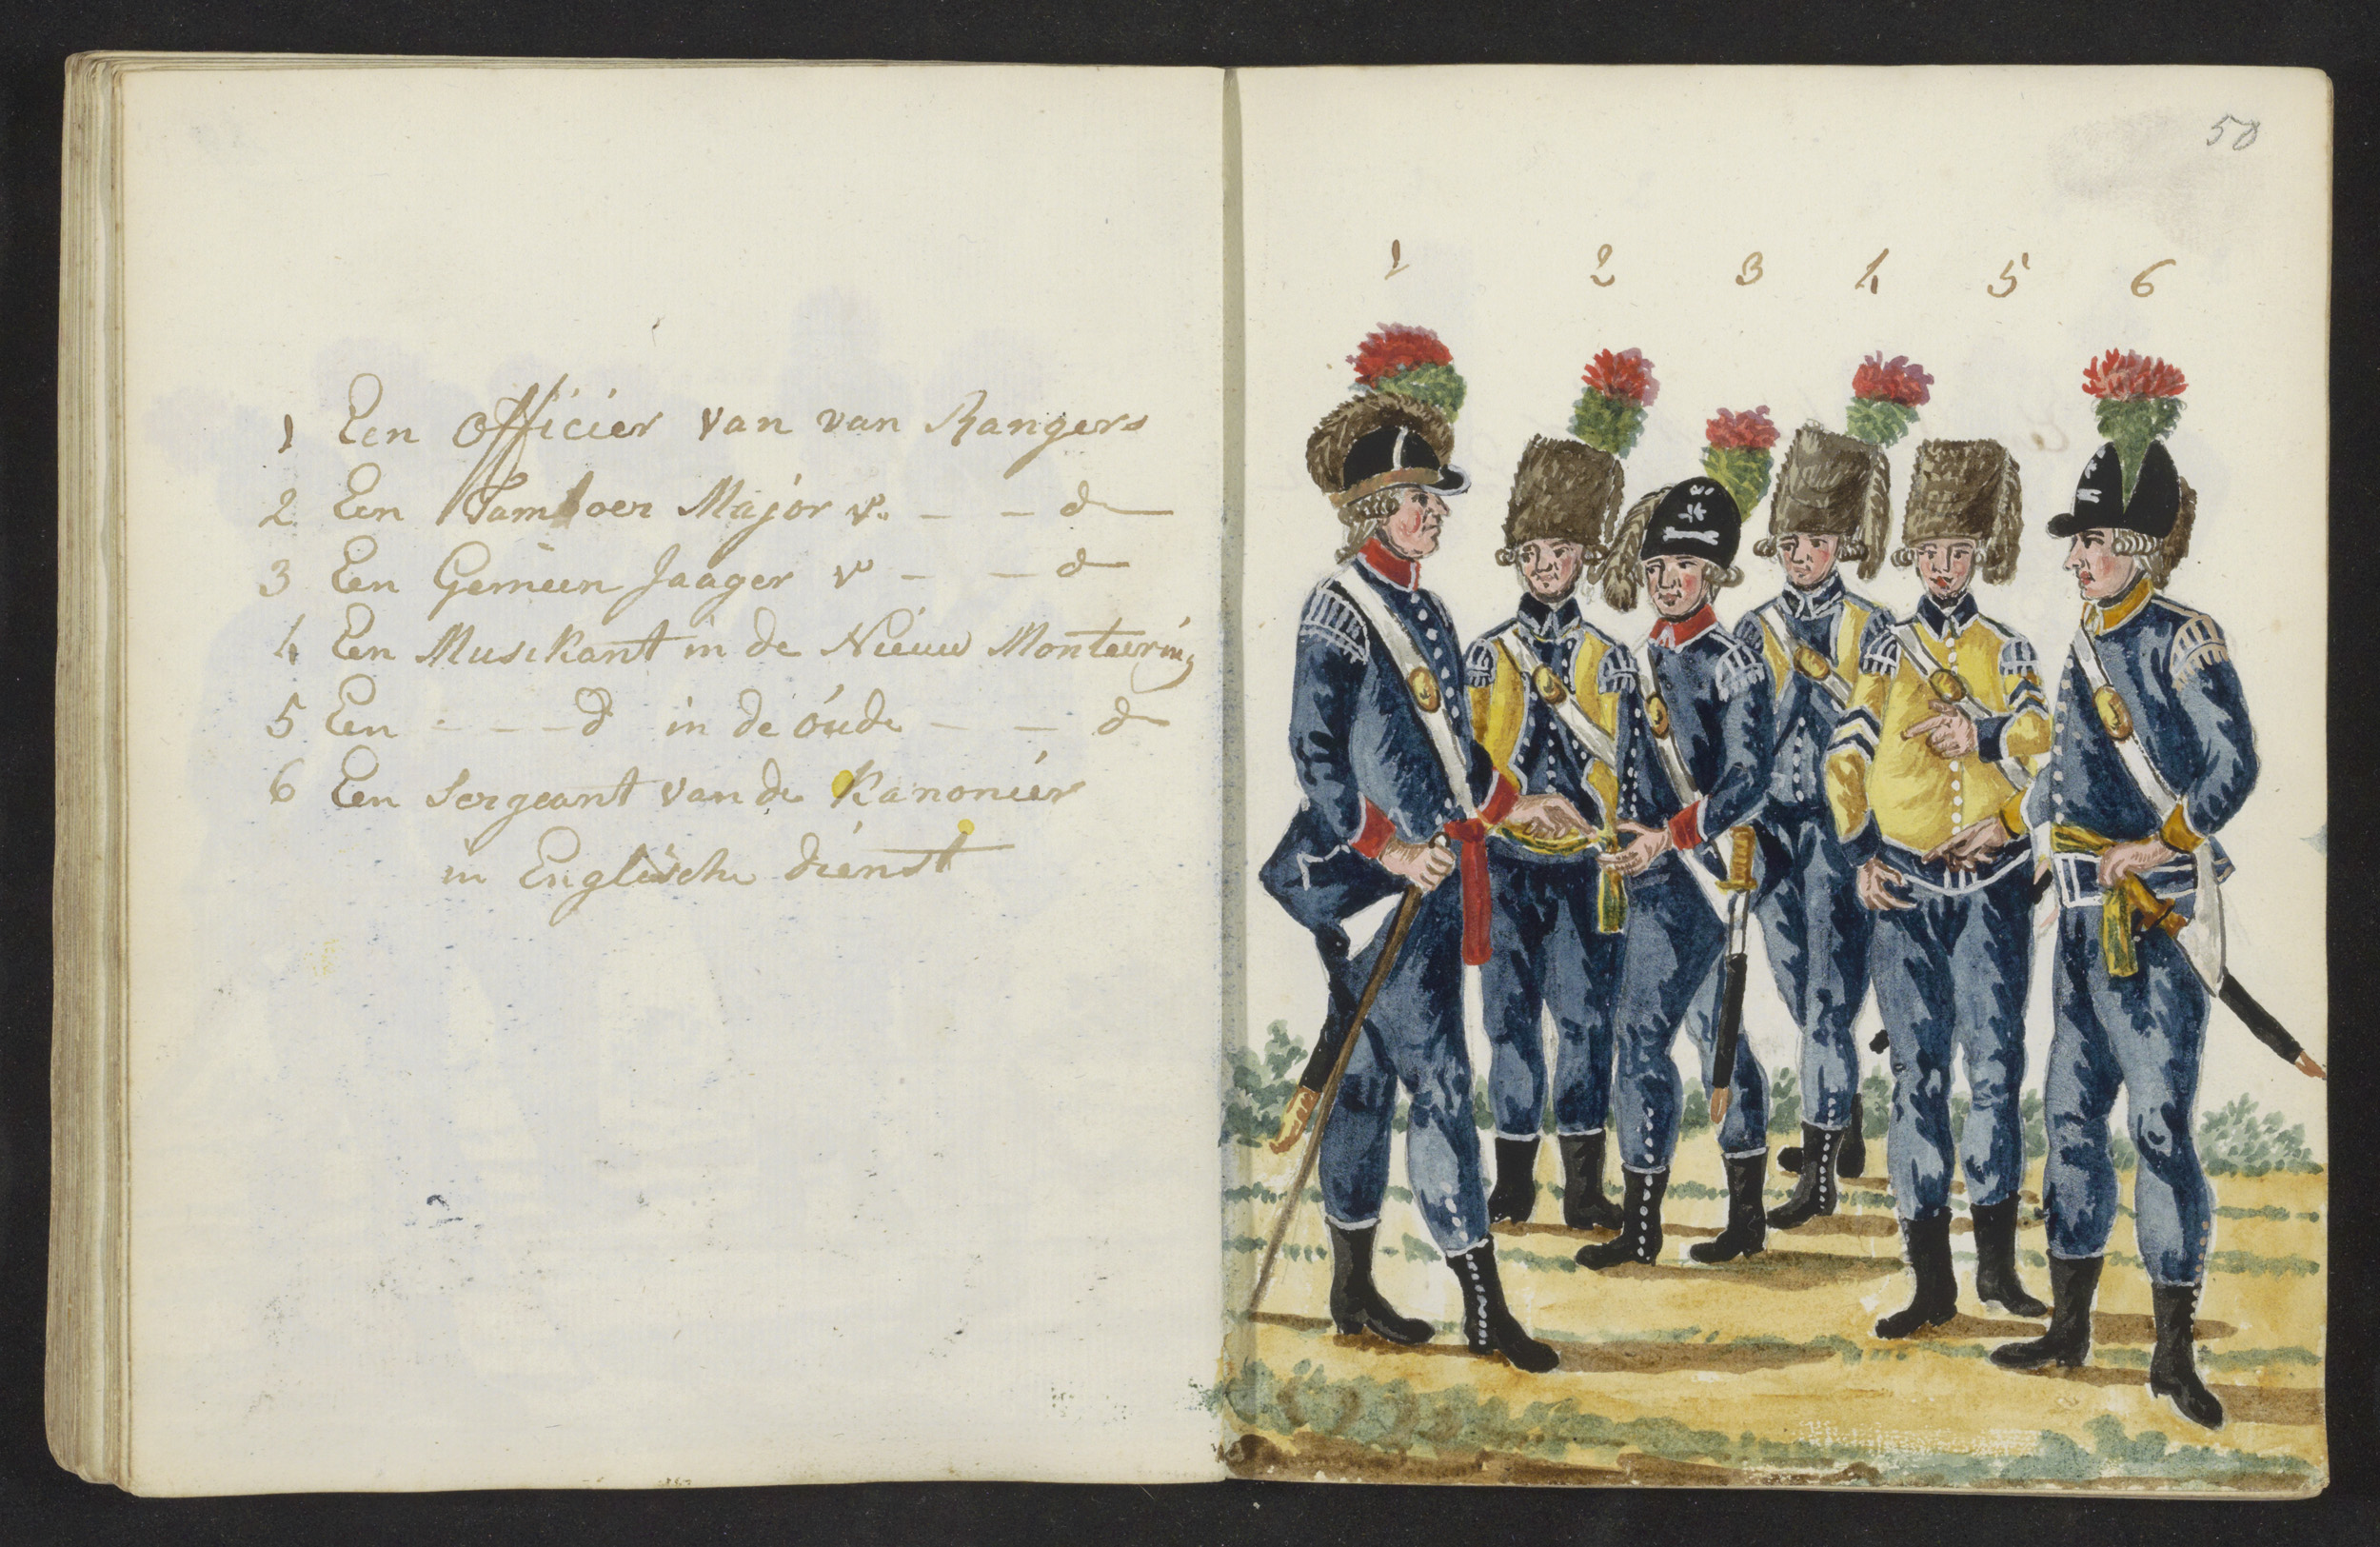 1 Een Officier van van Rangers
2 Een Tamboer Major v. – – d
3 Een Gemeen Jaager v – – d
4 Een Musikant in de Nieuw Monteering
5 Een - - - d in de oude – – d
6 Een Sergeant van de Kanonier
in Englische dienst
50
1 2 3 4 5 6